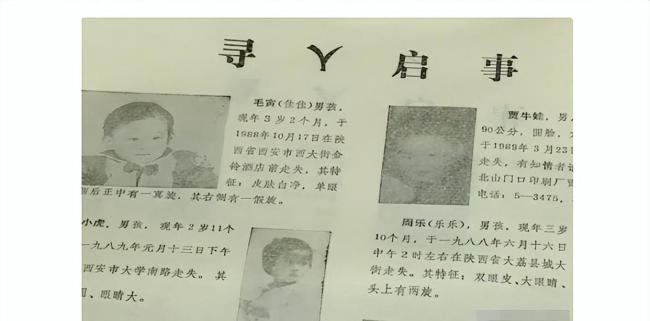 寻人启事
毛寅(佳佳)男孩,
现年3岁2个月,于
1988年10月17日在陕
西省西安市西大街金
铃酒店前走失,其特
征:皮肤白净,单眼
后正中有一真旋,其右侧有一假旋。
贾牛娃,男,
90公分,圆脸,
于1989年3月23
走失,有知情者
北山门口印刷厂
电话:5—3475,
小虎,男孩,现年2岁11个
一九八九年元月十三日下午
西安市大学南路走失。其
圆、眼睛大。
周乐(乐乐),男孩,现年三岁
10个月,于一九八八年六月十六日
中午2时左右在陕西省大荔县城大
街走失。其特征:双眼皮、大眼睛、
头上有两旋。